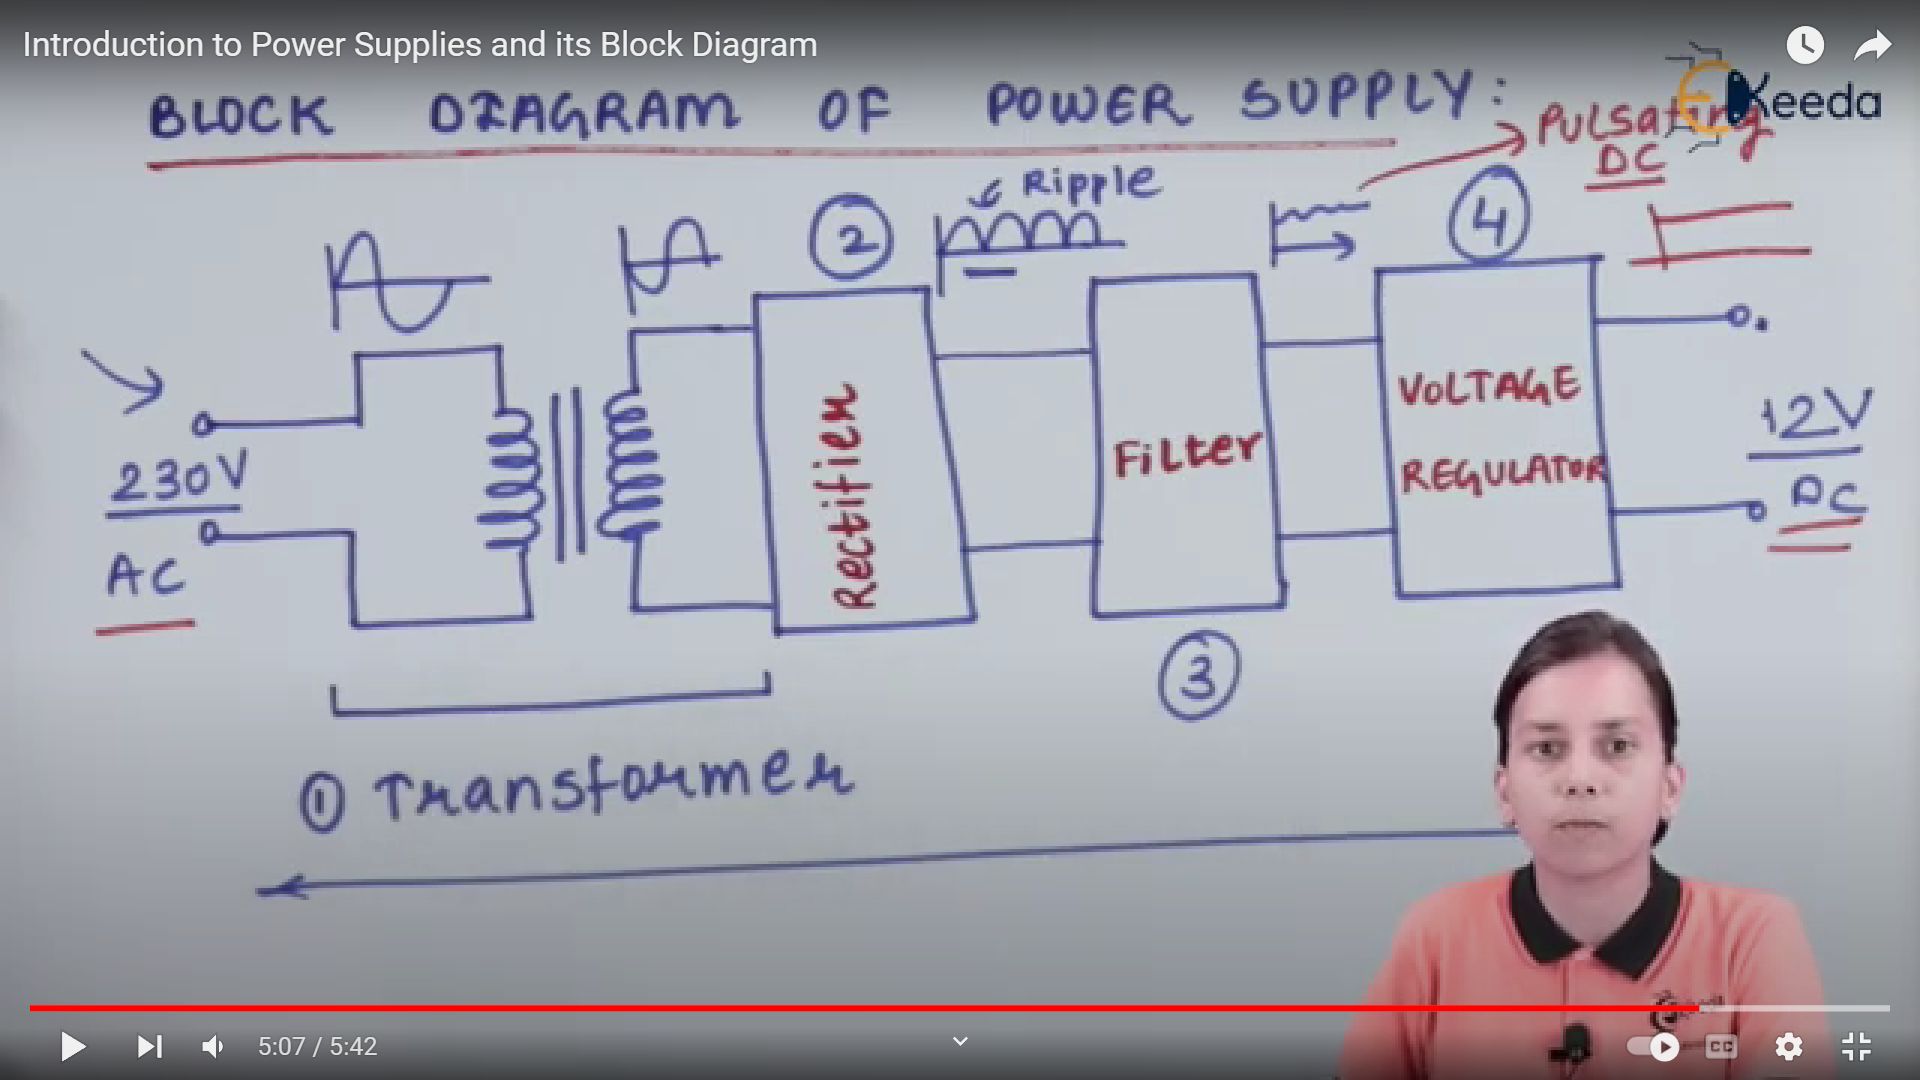 Introduction to Power Supplies and its Block Diagram
Keeda
BLOCK DIAGRAM OF POWER SUPPLY:
Pulsating
DC
Ripple
2
4
230V
AC
Rectifier
Filter
VOLTAGE
REGULATOR
12V
DC
3
1 Transformer
5:07 / 5:42
CC